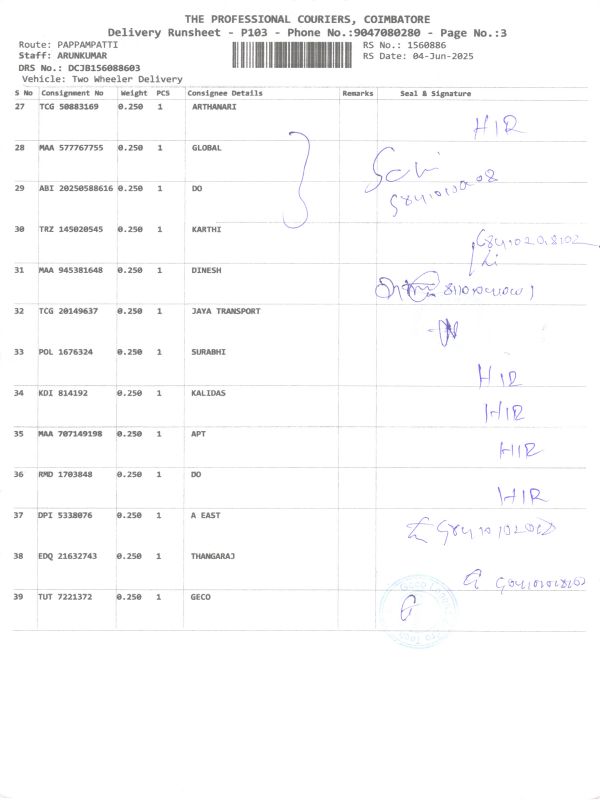 THE PROFESSIONAL COURIERS, COIMBATORE
Delivery Runsheet - P103 - Phone No.:9047080280 - Page No.:3
Route: PAPPAMPATTI RS No.: 1560886
Staff: ARUNKUMAR RS Date: 04-Jun-2025
DRS No.: DCJB156088603
Vehicle: Two Wheeler Delivery
S No Consignment No Weight PCS Consignee Details Remarks Seal & Signature
27 TCG 50883169 0.250 1 ARTHANARI
HIR
28 MAA 577767755 0.250 1 GLOBAL
29 ABI 20250588616 0.250 1 DO
30 TRZ 145020545 0.250 1 KARTHI
31 MAA 945381648 0.250 1 DINESH
32 TCG 20149637 0.250 1 JAYA TRANSPORT
33 POL 1676324 0.250 1 SURABHI
HIR
34 KDI 814192 0.250 1 KALIDAS
HIR
35 MAA 707149198 0.250 1 APT
HIR
36 RMD 1703848 0.250 1 DO
HIR
37 DPI 5338076 0.250 1 A EAST
38 EDQ 21632743 0.250 1 THANGARAJ
39 TUT 7221372 0.250 1 GECO